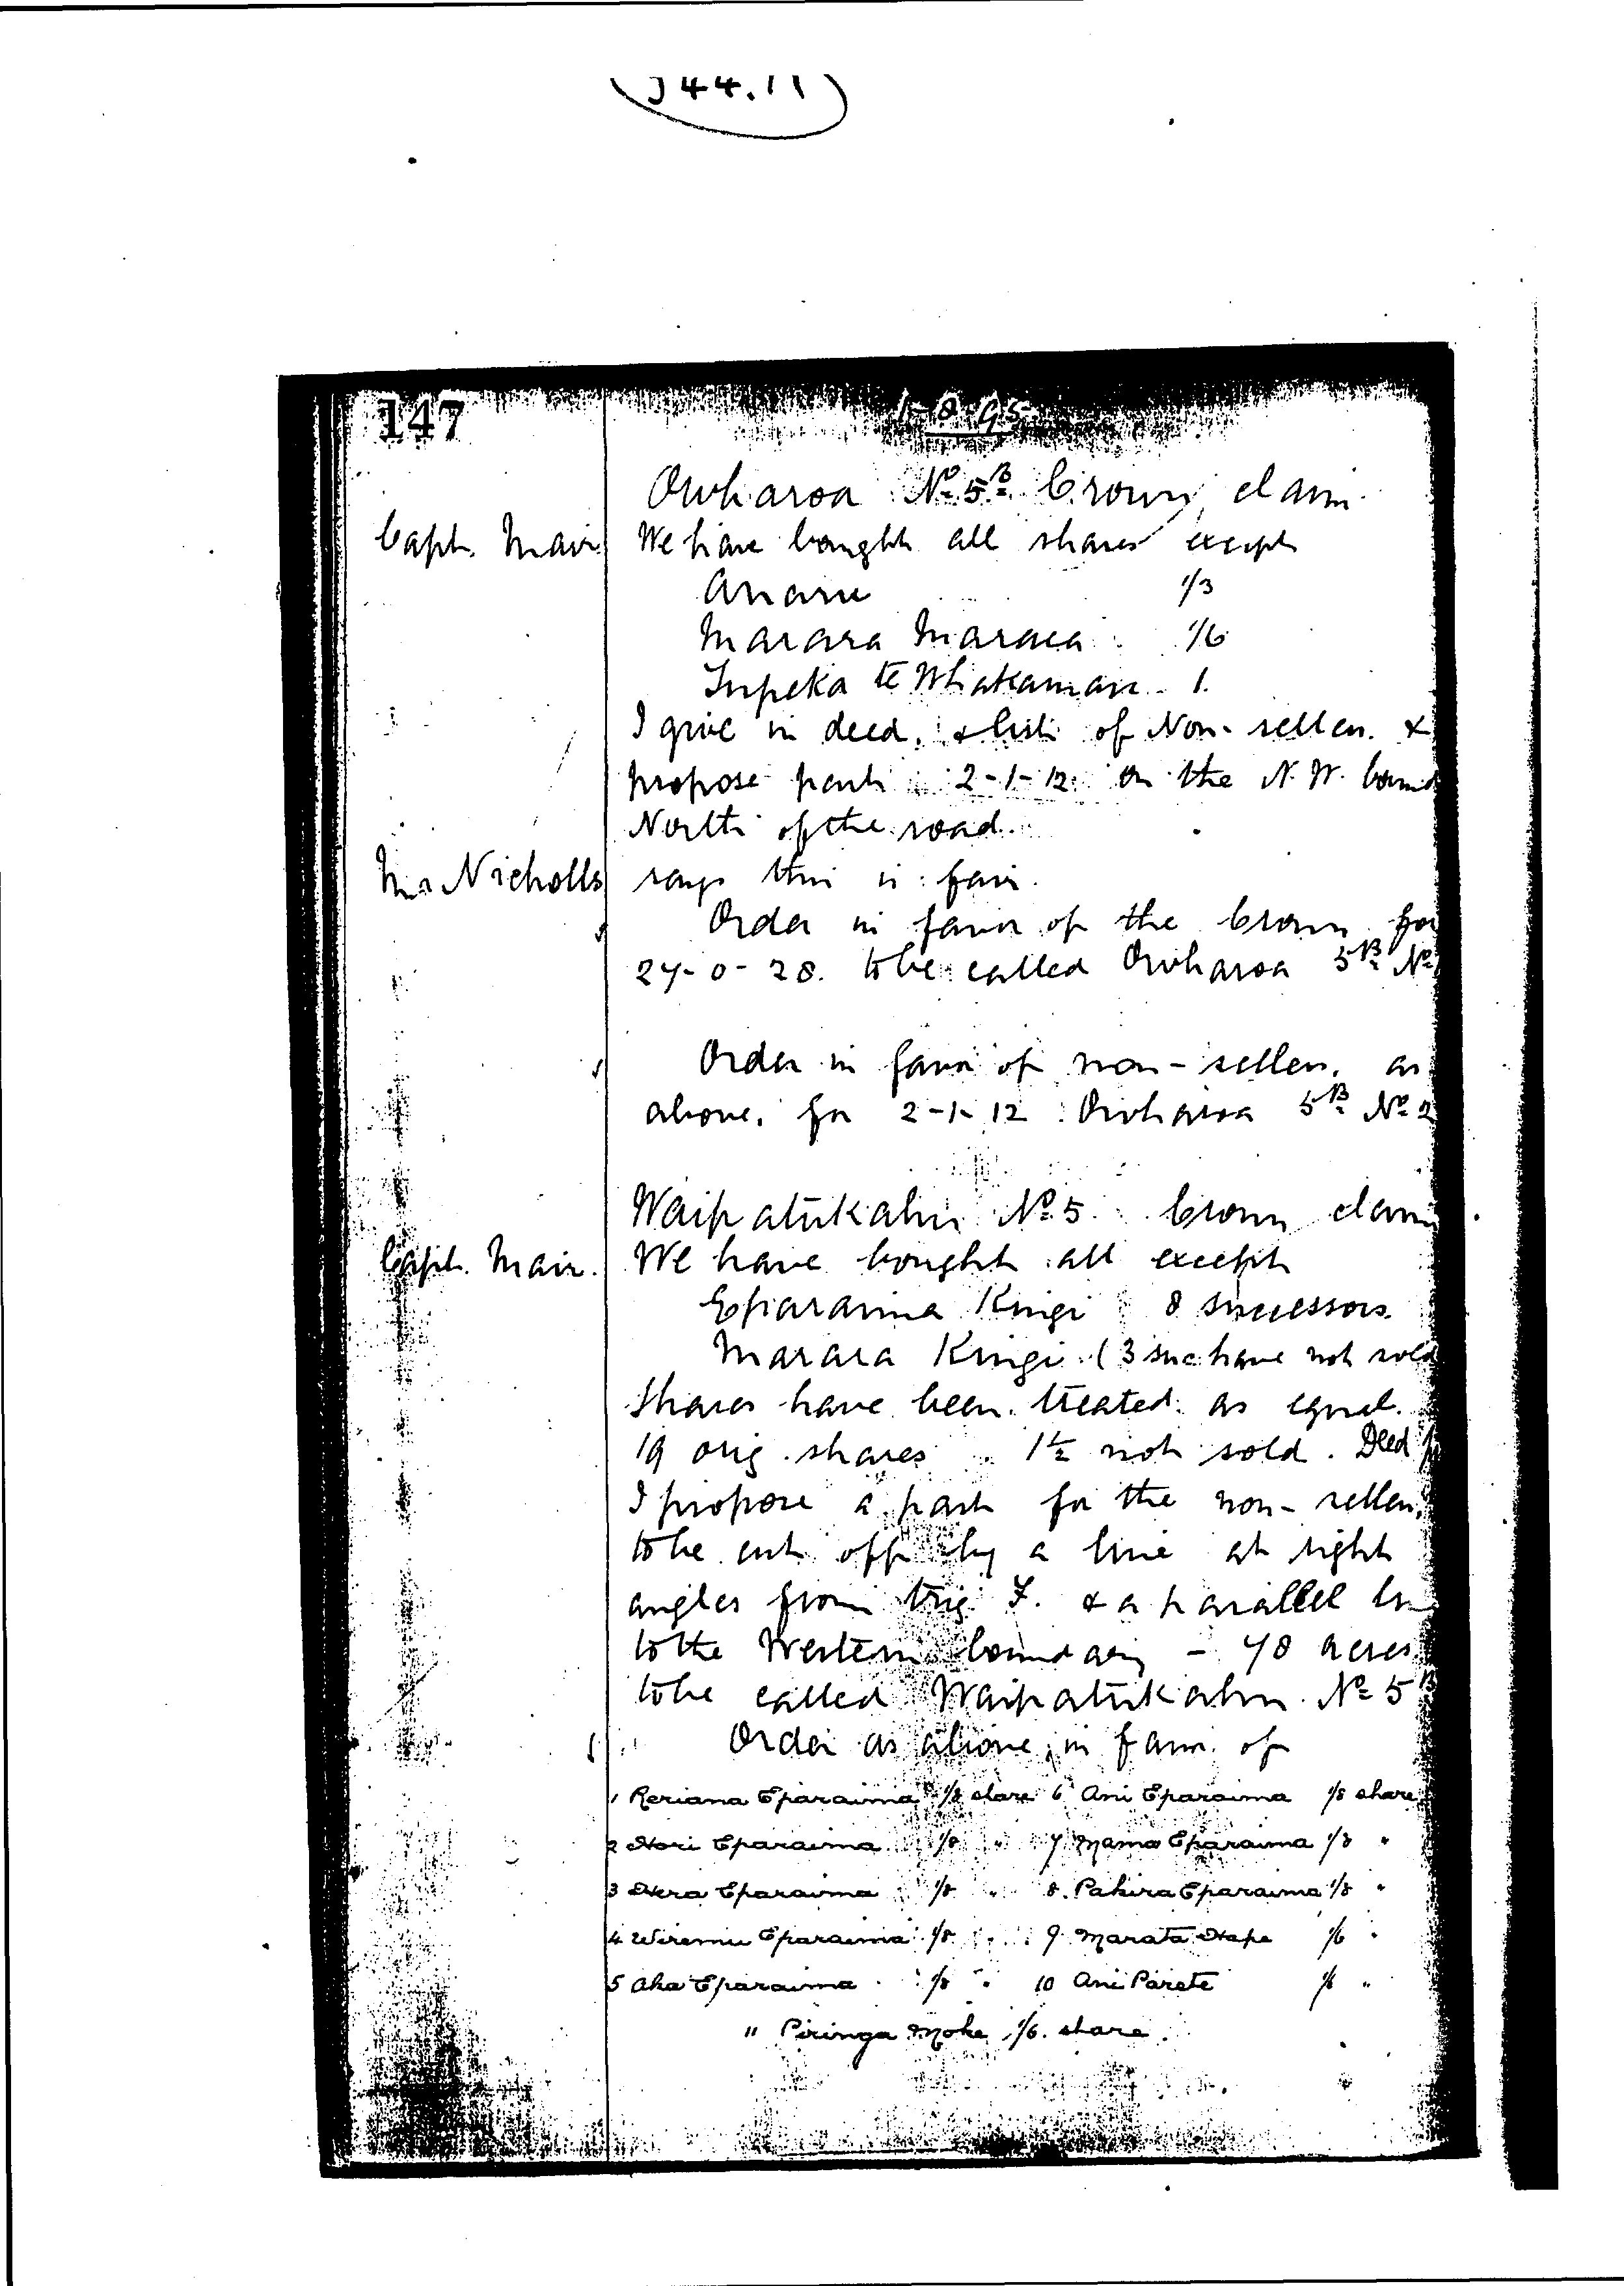 J44.11
147
1-8-95
Owharoa No 5B Crown claim
Capt. Mair We have bought all shares except
Anaru 1/3
Marara Maraea 1/6
Turpeka te Whakamau 1.
I give in deed, & list of Non-sellers. &
propose part 2-1-12 on the N.W. bound
North of the road.
Mr Nicholls says this is fair.
Order in favor of the Crown for
27-0-28. to be called Owharoa 5B No
Order in favor of non-sellers. as
above. for 2-1-12 Owharoa 5B No 2
Waipatukahu No 5 Crown claim
Capt. Mair. We have bought all except
Eparaima Kingi 8 successors.
Marara Kingi (3 suc have not sold
Shares have been treated as equal.
19 orig. shares 1½ not sold. Deed
I propose a part for the non-sellers
to be cut off by a line at right
angles from trig F. & a parallel
to the Western boundary - 78 acres
to be called Waipatukahu No 5B
Order as above in favor of
1 Reriana Eparaima 1/8 share 6 Ani Eparaima 1/8 share
2 Hori Eparaima 1/8 " 7 Mama Eparaima 1/8 "
3 Hera Eparaima 1/8 " 8. Pahira Eparaima 1/8 "
4 Wiremu Eparaima 1/8 " 9 Marata Hape 1/6 "
5 Aha Eparaima 1/8 " 10 Ani Parete 1/6 "
11 Piringa Moke 1/6 share.